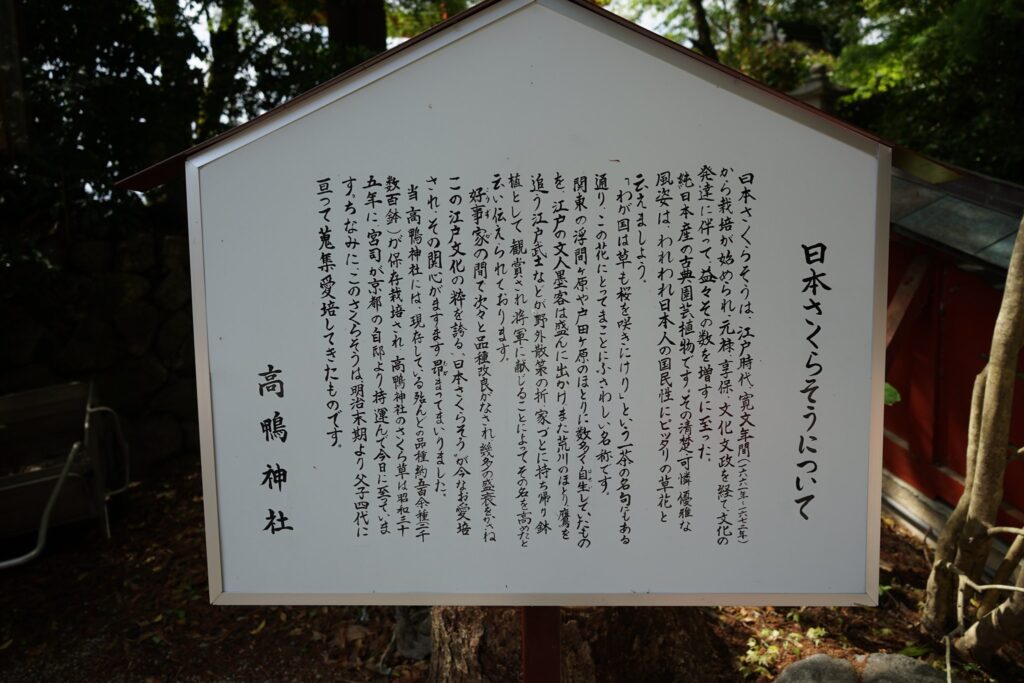 日本さくらそうについて
日本さくらそうは、江戸時代、寛文年間(一六六一年~一六七二年)
から栽培が始められ、元株、享保、文化文政を経て文化の
発達に伴って、益々その数を増すに至った。
純日本産の古典園芸植物です。その清楚、可憐、優雅な
風姿は、われわれ日本人の国民性にピッタリの草花と
云えましょう。
「わが国は草も桜を咲きにけり」という一茶の名句にもある
通り、この花にとってまことにふさわしい名称です。
関東の浮間ヶ原や戸田ヶ原のほとりに数多く自生していたもの
を、江戸の文人墨客は盛んに出かけ、また荒川のほとり鷹を
追う江戸武士などが野外散策の折、家づとに持ち帰り鉢
植として、観賞され将軍に献じることによってその名を高めたと
云い伝えられております。
好事家の間で次々と品種改良がなされ幾多の盛衰をかさね
この江戸文化の粋を誇る「日本さくらそう」が今なお愛培
され、その関心がますます昂まってまいりました。
当高鴨神社には、現存している殆んどの品種約五百余種(二千
数百鉢)が保存栽培され、高鴨神社のさくら草は昭和三十
五年に宮司が京都の自邸より持運んで今日に至っていま
す。ちなみに、このさくらそうは明治末期より父子四代に
亘って蒐集愛培してきたものです。
高鴨神社